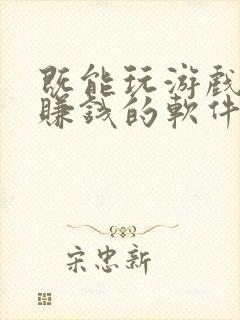 既能玩游戏
賺錢的軟件
宋忠新